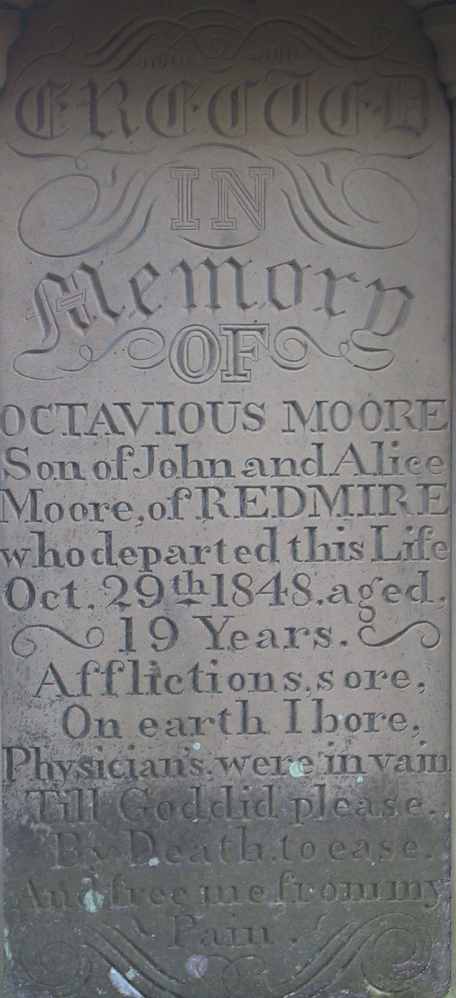 ERECTED
IN
Memory
OF
OCTAVIOUS MOORE
Son of John and Alice
Moore, of REDMIRE
who departed this Life
Oct. 29th 1848. aged.
19 Years.
Afflictions, sore,
On earth I bore,
Physician's, were in vain
Till God did please.
By Death, to ease.
And free me from my
Pain.